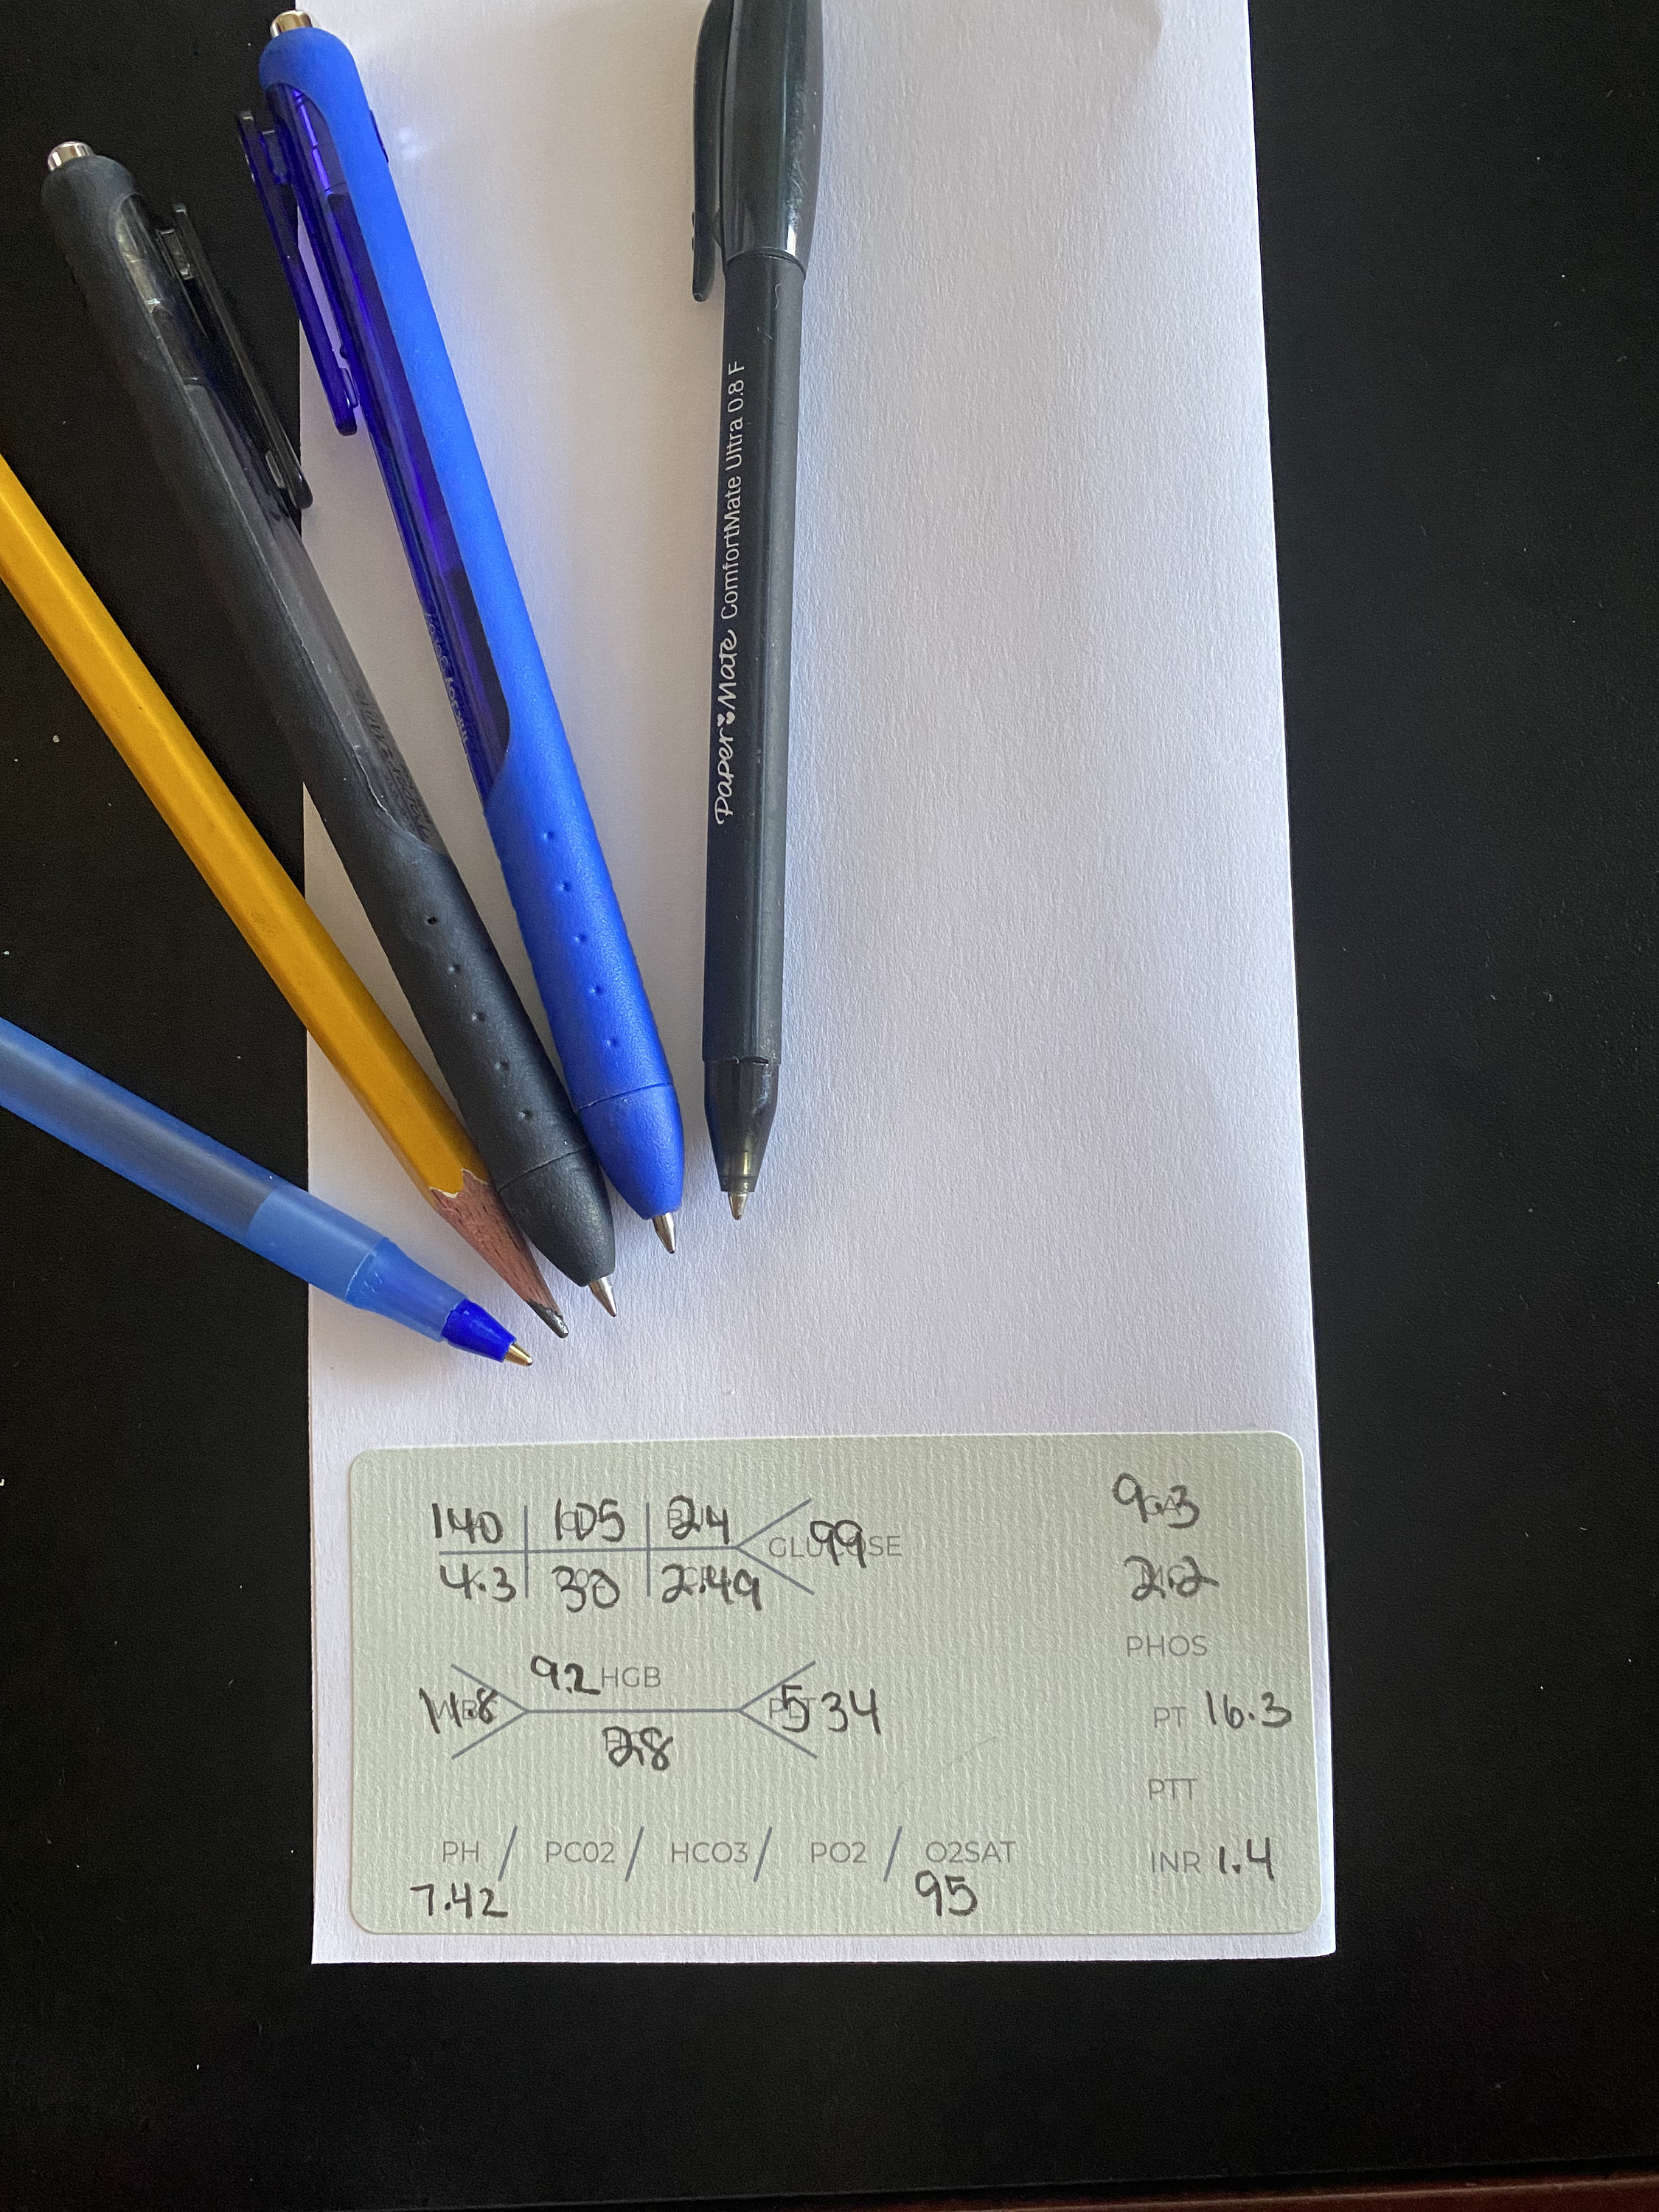 Paper Mate ComfortMate Ultra 0.8 F
140 105 24
GLUCOSE 99
4.3 30 2.49
9.3
2.2
9.2 HGB
11.8 534
28
PHOS
PT 16.3
PTT
PH / PCO2 / HCO3 / PO2 / O2SAT
7.42 95
INR 1.4